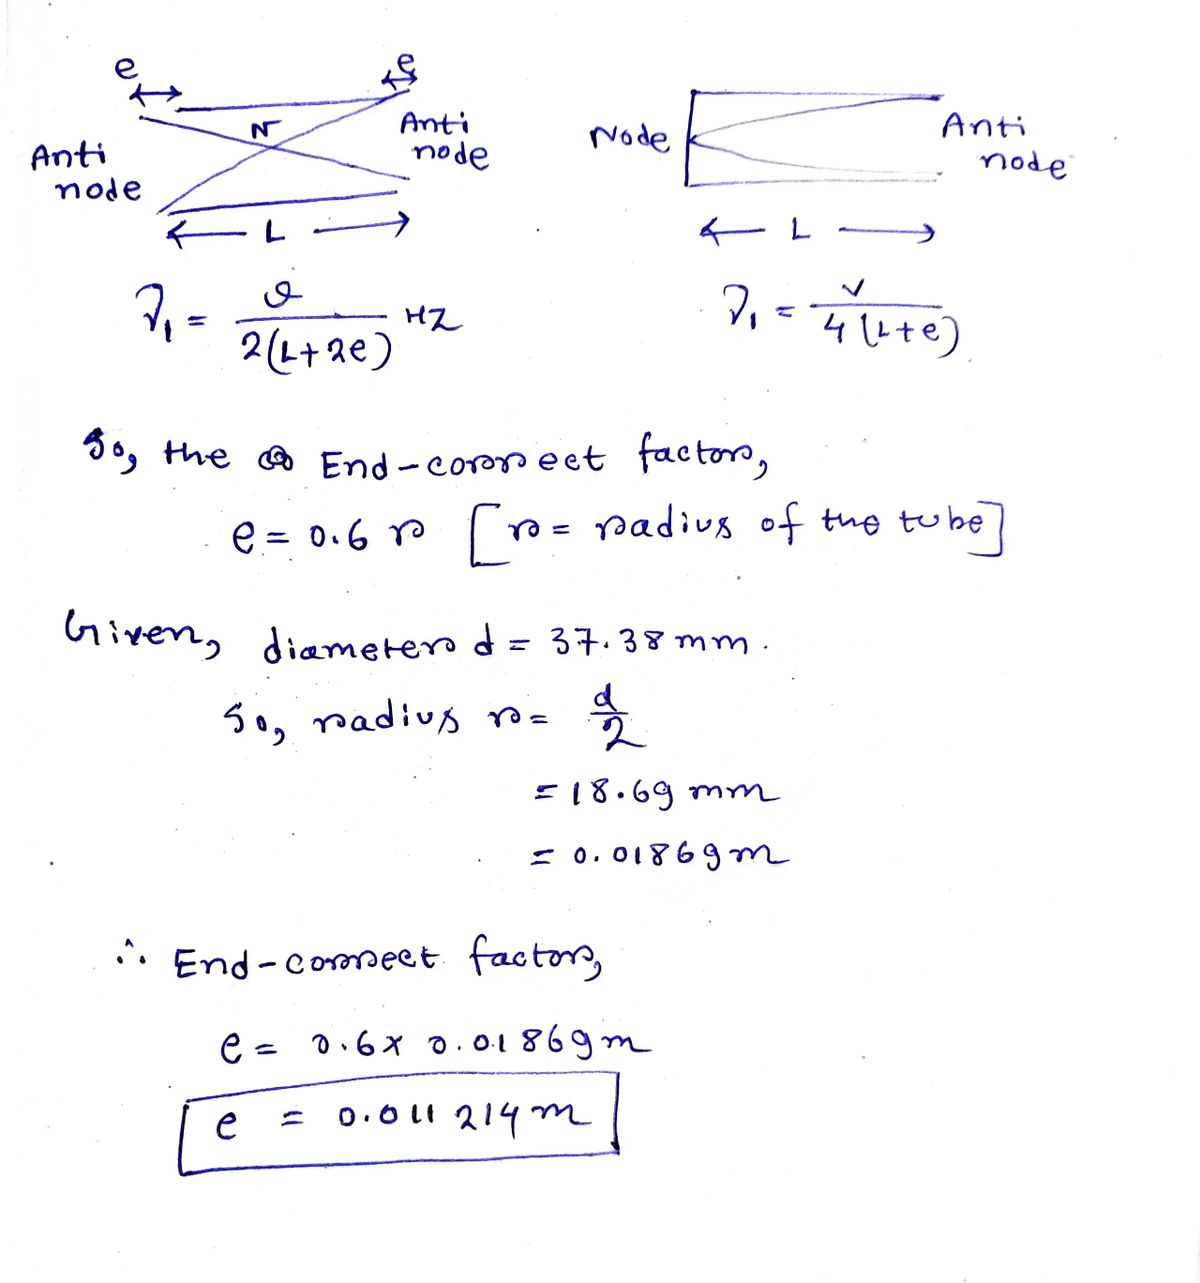 e e
Anti node N Anti node
← L →
ν₁ = v / 2(L+2e) HZ
Node Anti node
← L →
ν₁ = v / 4(L+e)
So, the End-correct factor,
e = 0.6 r [r = radius of the tube]
Given, diameter d = 37.38 mm.
So, radius r = d/2
= 18.69 mm
= 0.01869 m
∴ End-correct factor,
e = 0.6 x 0.01869 m
e = 0.011214 m